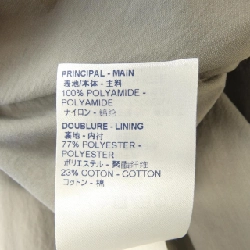 PRINCIPAL - MAIN
表地/本体 - 主料
100% POLYAMIDE -
POLYAMIDE
ナイロン -
DOUBLURE - LINING
裏地 - 内衬
77% POLYESTER -
POLYESTER
ポリエステル -
23% COTON - COTTON
コットン - 棉